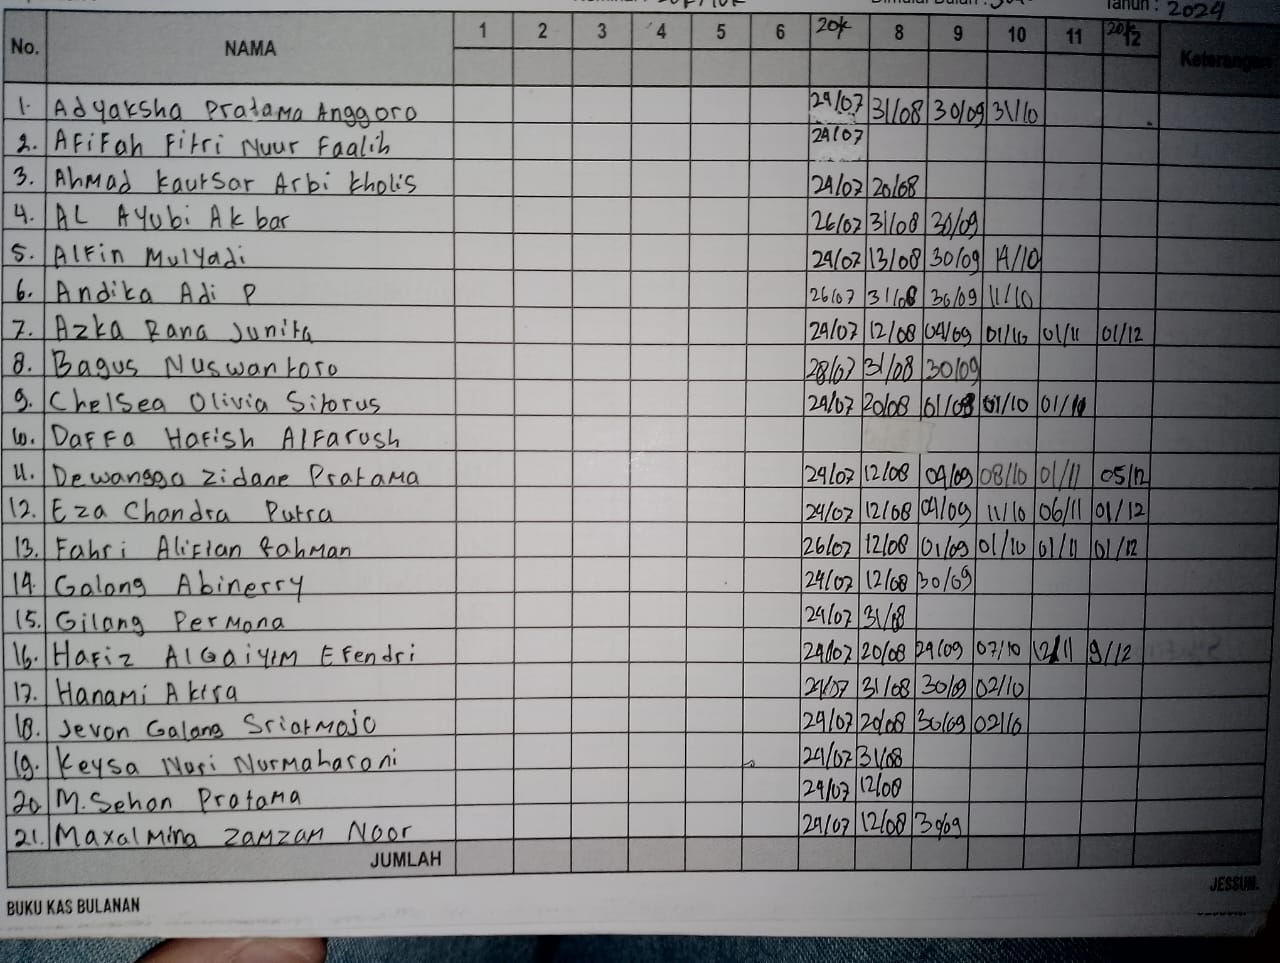 Tahun : 2024
No. NAMA 1 2 3 4 5 6 20k 8 9 10 11 12 Keterangan
1. Adyaksha Pratama Anggoro 29/07 31/08 30/09 31/10
2. Afifah Fitri Nuur Faalih 29/07
3. Ahmad Kautsar Arbi Kholis 29/07 20/08
4. AL Ayubi Akbar 26/07 31/08 30/09
5. Alfin Mulyadi 29/07 13/08 30/09 14/10
6. Andika Adi P 26/07 31/08 30/09 11/10
7. Azka Rana Junita 29/07 12/08 04/09 01/10 01/11 01/12
8. Bagus Nuswantoro 28/07 31/08 30/09
9. Chelsea Olivia Sitorus 29/07 20/08 01/10 01/11
10. Daffa Hafish Alfarush
11. Dewangga Zidane Pratama 29/07 12/08 09/09 08/10 01/11 05/12
12. Eza Chandra Putra 29/07 12/08 04/09 11/10 06/11 01/12
13. Fahri Aliflan Rahman 26/07 12/08 01/09 01/10 01/11 01/12
14. Galang Abinerry 29/07 12/08 30/09
15. Gilang Permana 29/07 31/08
16. Hafiz AlGaiyim Efendri 29/07 20/08 29/09 07/10 12/11 9/12
17. Hanami Akira 29/07 31/08 30/09 02/10
18. Jevon Galang Sriatmojo 29/07 20/08 30/09 02/10
19. Keysa Nuri Nurmaharani 29/07 31/08
20 M. Sehan Pratama 29/07 12/08
21. Maxalmina Zamzam Noor 29/07 12/08 30/09
JUMLAH
JESSUN.
BUKU KAS BULANAN